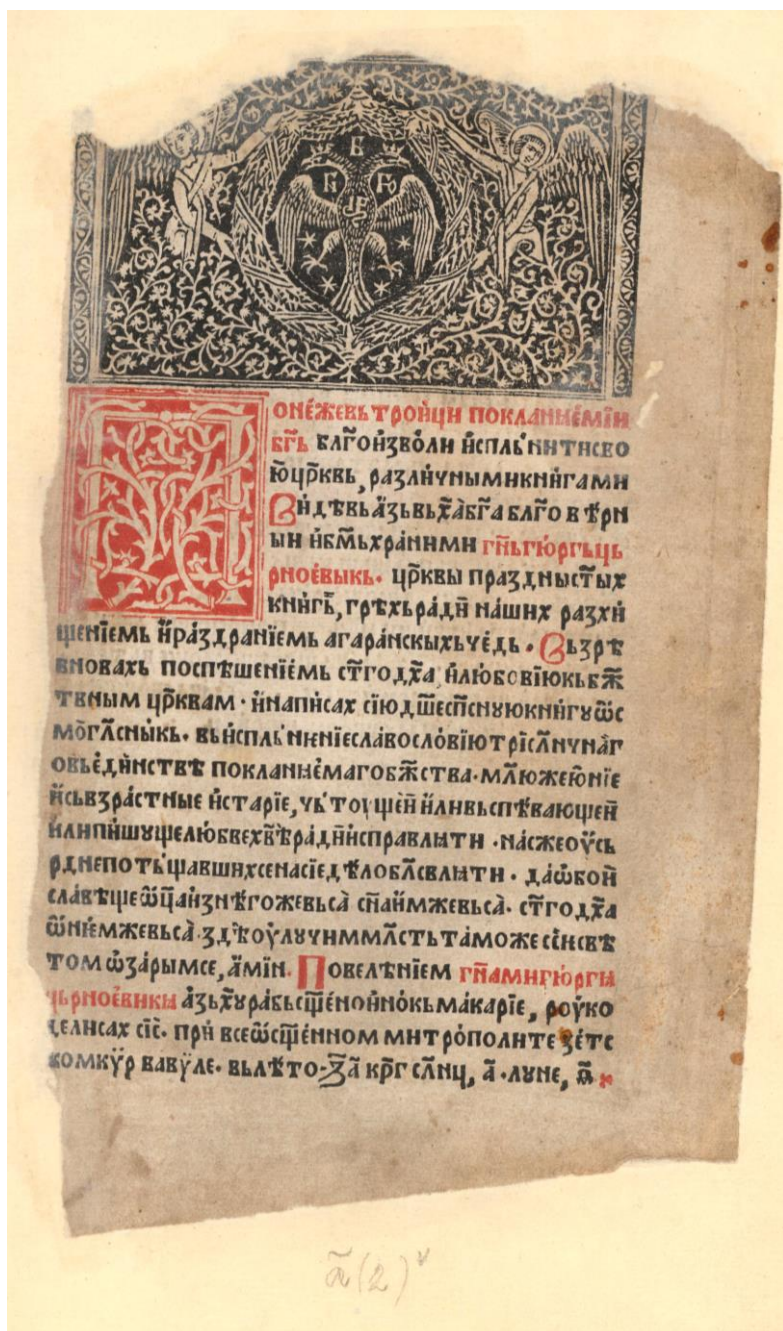 Б
Гн Гю
онѐжевьтроѝци покланнѐмїи
бг҃ь благ҃оѝзво́ли ѝспль́нитисво
ю̀цр҃квь, разлѝчнымикнѝгами
Вѝдѣвьа҆́зьвьх҃а̀бг҃аблаг҃овѣрн
ыи ѝбм҃ьхра́нимми гн҃ьгю́ргьць
рноѐвыкь. цр҃квы праздныст҃ых
кнѝгь, грѣхьра́дѝ на́ших разхѝ
щенїемь ѝра́здранїемь агара́нскыхьче́дь. Вьзрѣ
вновахь поспѣшенїѐмь ст҃годх҃а ѝлюбовїюкьбж҃
твным цр҃квам. ѝнапѝсах сїюдш҃есп҃снуюкнѝгуѡс
могл҃сны́кь. вьѝспль́ненїеславосло́вїютрїсл҃нчна́г
овьѐдѝнствѣ покланнѐмагобж҃ства. мл҃южею҆нїе
ѝсьвзра́стные ѝстарїе, чьтоущеѝ ѝливьспѣвающеѝ
ѝлипѝшущелю́бвех҃вѣра́дѝѝсправлꙗти. на́сжеоу҆сь
рднепоть́щавшихсенасїедѣлобл҃свлꙗти. да́ѡбоѝ
славѣщеѡц҃аѝзнѣгожевьса̀ сн҃аѝмжевьса̀. ст҃годх҃а
ѡ҆не́мжевьса̀. здѣоу҆лу́чиммл҃стьта́можесїи́свѣ
том ѡза́рымсе, а҆́мїн. Повелѣнїем гн҃амигюргы
црьноѐвики а҆зьх҃ура́бьсщ҃е́ноѝно́кьмака́рїе, роу́ко
делисах сїе҃. прѝ всеѡсщ҃е́нном митро́политѣ зе́тс
комкѵ̈р вавѵ́ле. вьлѣто. ҂з҃а кр҃г сл҃нц, а҃. луне, ѳ҃
а҃(2)ᵛ